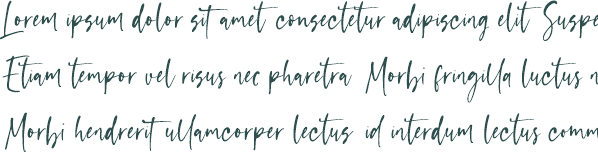 Lorem ipsum dolor sit amet consectetur adipiscing elit Suspe
Etiam tempor vel risus nec pharetra Morbi fringilla luctus n
Morbi hendrerit ullamcorper lectus id interdum lectus comm